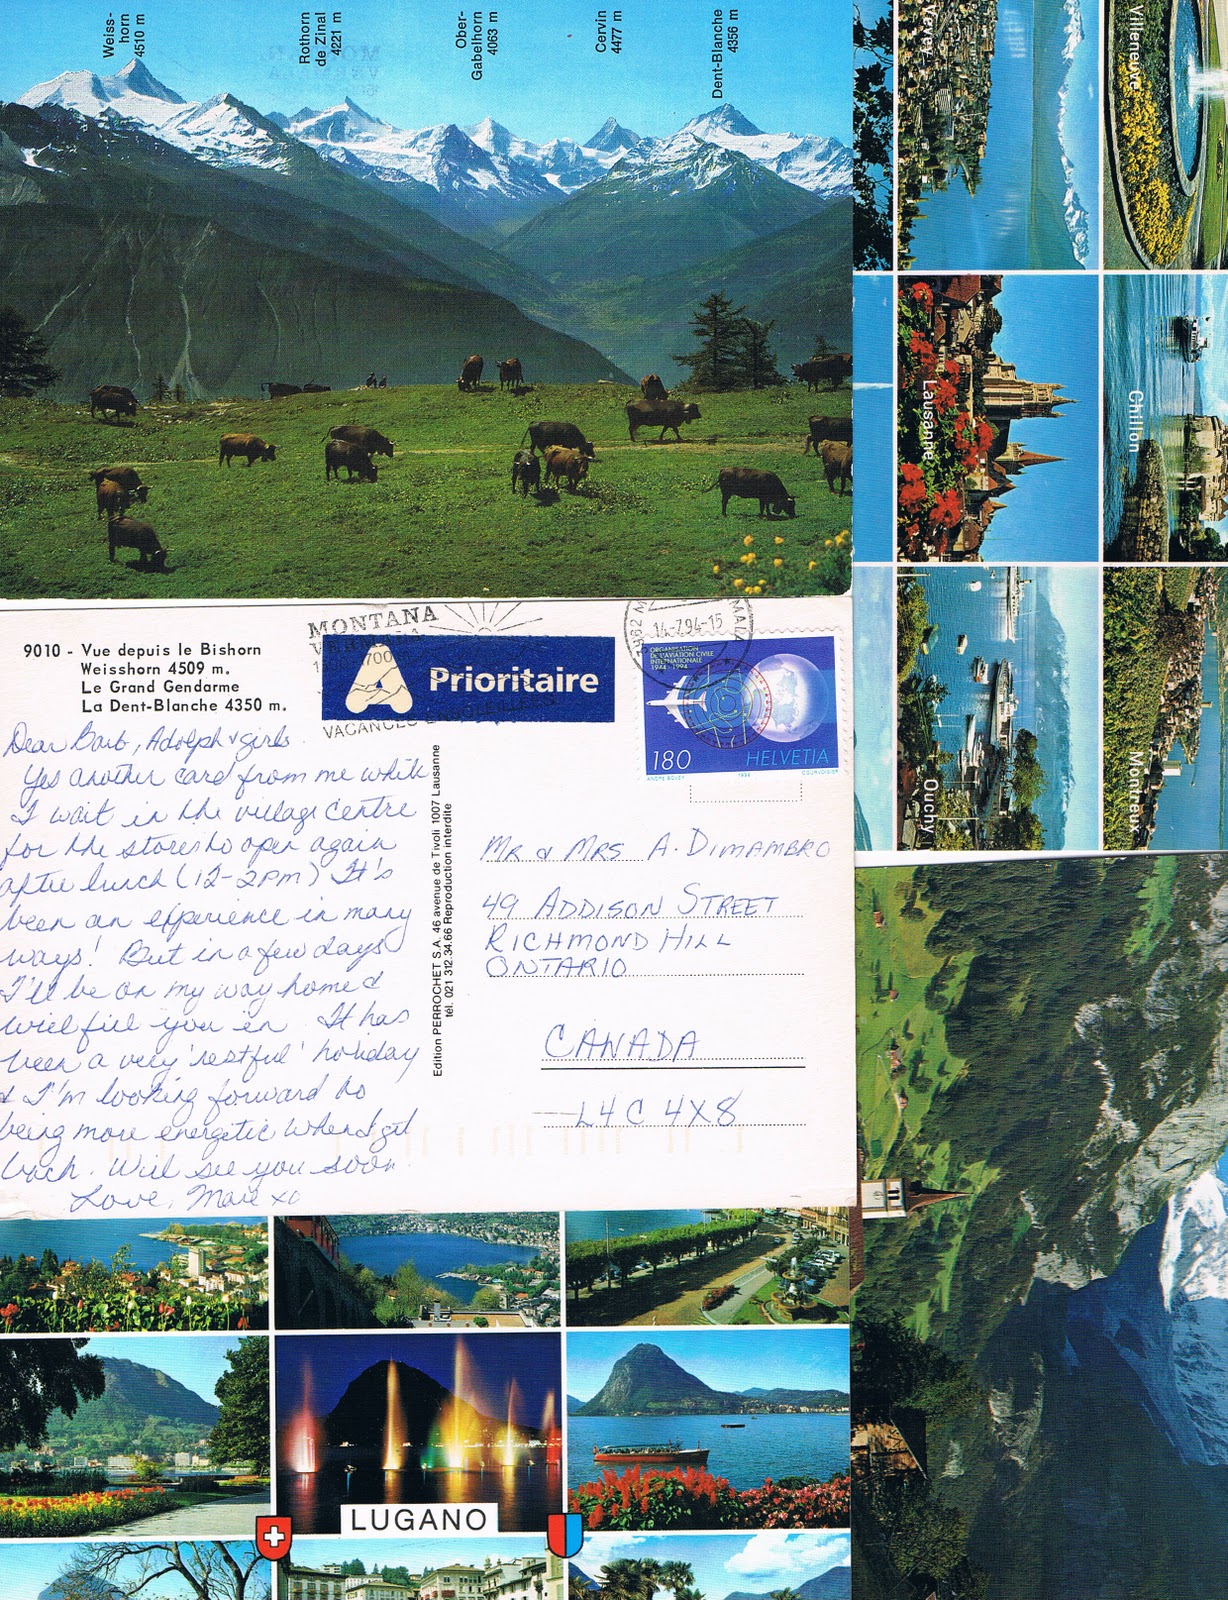 Weiss-
horn
4510 m
Rothorn
de Zinal
4221 m
Ober-
Gabelhorn
4063 m
Cervin
4477 m
Dent-Blanche
4356 m
Vevey
Villeneuve
Lausanne
Chillon
Ouchy
Montreux
9010 - Vue depuis le Bishorn
Weisshorn 4509 m.
Le Grand Gendarme
La Dent-Blanche 4350 m.
MONTANA
VACANCES
Prioritaire
14-7.94-15
ORGANISATION
DE L'AVIATION CIVILE
INTERNATIONALE
1944-1994
180 HELVETIA
1994 COURVOISIER
Dear Barb, Adolph & girls
Yes another card from me while
I wait in the village centre
for the stores to open again
after lunch (12-2PM) It's
been an experience in many
ways! But in a few days
I'll be on my way home &
will fill you in. It has
been a very 'restful' holiday
& I'm looking forward to
being more energetic when I get
back. Will see you soon.
Love, Marie xo
Edition PERROCHET S.A. 46 avenue de Tivoli 1007 Lausanne
tél. 021 312.34.66 Reproduction interdite
MR & MRS A. DIMAMBRO
49 ADDISON STREET
RICHMOND HILL
ONTARIO
CANADA
L4C 4X8
LUGANO